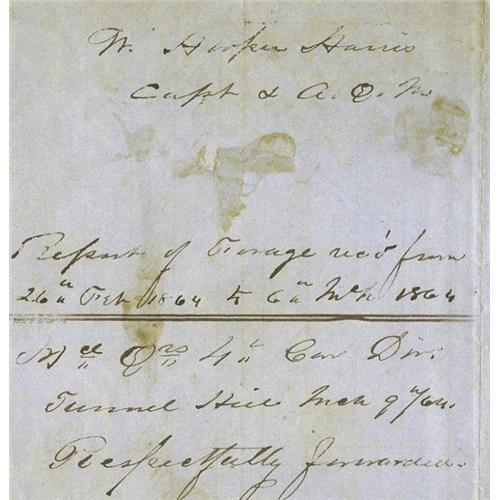 W. Hooper Harris
Capt & A. Q. M.
Report of Forage rec'd from
26th Feb 1864 to 6th Mch 1864
Hd Qrs 4th Cav Div.
Tunnel Hill Mch 9th/64.
Respectfully forwarded.